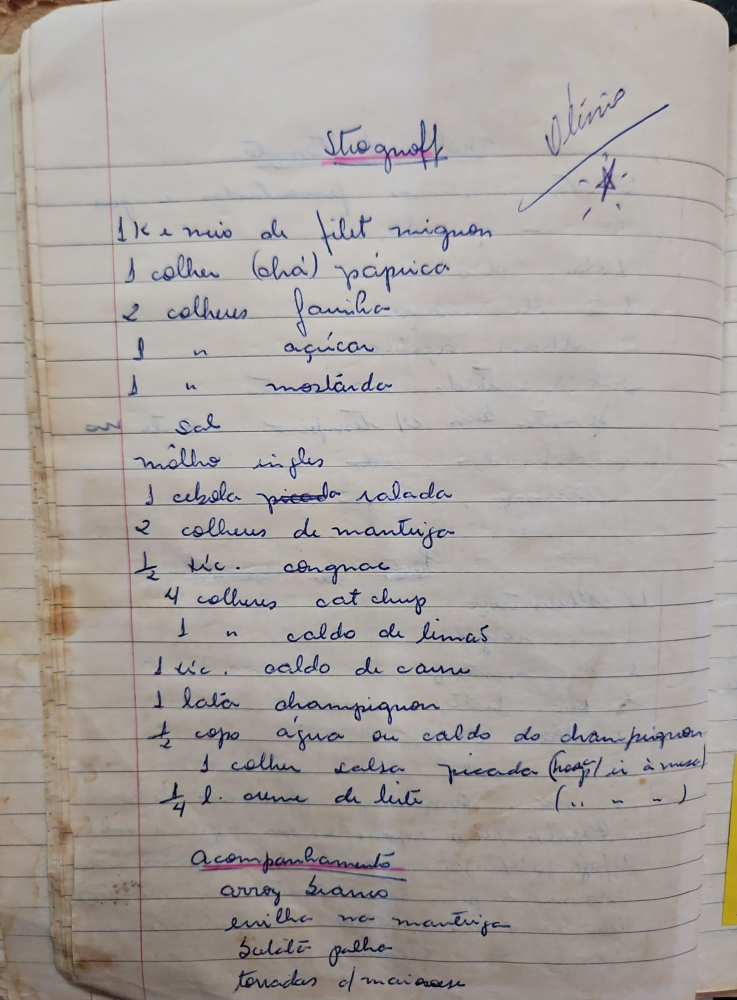 Strognoff
1K e meio de filet mignon
1 colher (chá) páprica
2 colheres farinha
1 " açúcar
1 " mostárda
sal
môlho ingles
1 cebola picada ralada
2 colheres de manteiga
1/2 xíc. congnac
4 colheres cat chup
1 " caldo de limão
1 xíc. caldo de carne
1 lata champignon
1/2 copo água ou caldo do champignon
1 colher salsa picada ( ir à mesa)
1/4 l. creme de leite (" " ")
Acompanhamento
arroz branco
ervilha na manteiga
batata palha
torradas c/ maionese